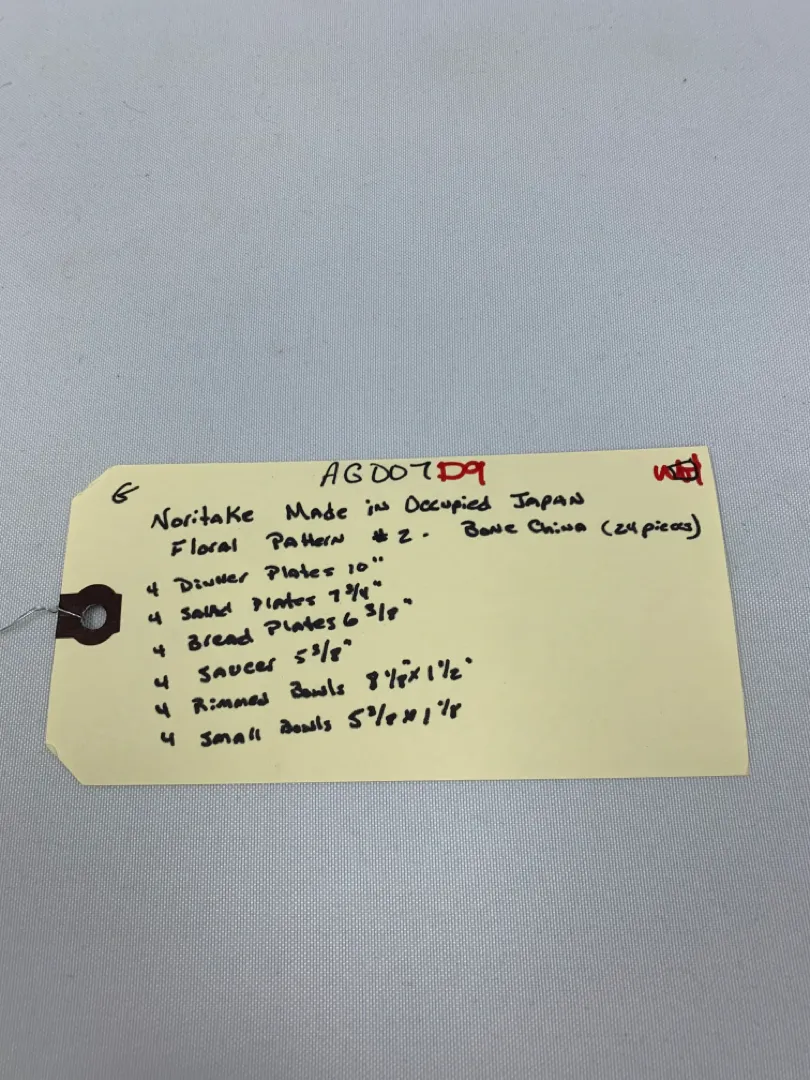 AGD07D9
G
Noritake Made in Occupied Japan
Floral Pattern #2. Bone China (24 pieces)
4 Dinner Plates 10"
4 Salad Plates 7 3/4"
4 Bread Plates 6 3/8"
4 Saucer 5 3/8"
4 Rimmed Bowls 8 1/8" x 1 1/2"
4 Small Bowls 5 3/8 x 1 1/8